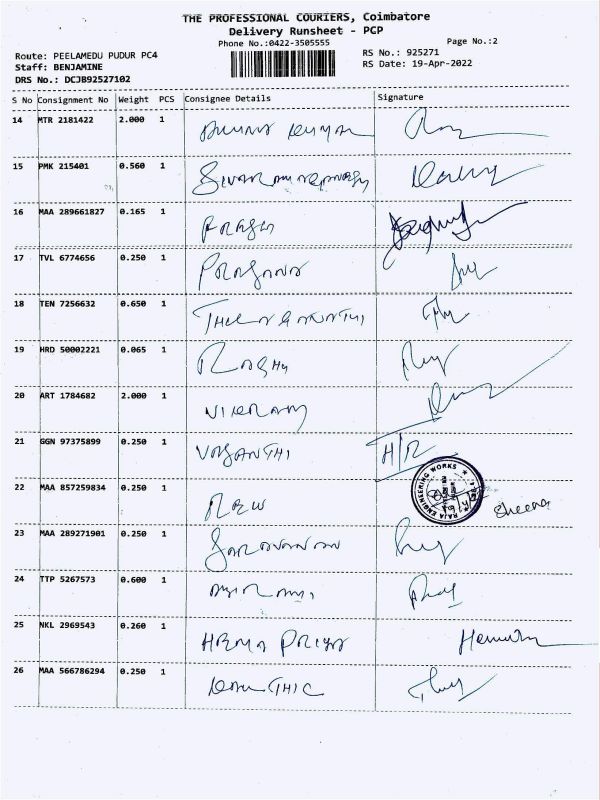 THE PROFESSIONAL COURIERS, Coimbatore
Delivery Runsheet - PCP
Phone No.:0422-3505555
Page No.:2
Route: PEELAMEDU PUDUR PC4
RS No.: 925271
Staff: BENJAMINE
RS Date: 19-Apr-2022
DRS No.: DCJB92527102
S No Consignment No Weight PCS Consignee Details Signature
14 MTR 2181422 2.000 1
15 PMK 215401 0.560 1
16 MAA 289661827 0.165 1
17 TVL 6774656 0.250 1 PRASANNA
18 TEN 7256632 0.650 1
19 HRD 50002221 0.065 1 RAGHU
20 ART 1784682 2.000 1 VIKRAM
21 GGN 97375899 0.250 1 VASANTHI H/R
RAJA ENGINEERING WORKS
22 MAA 857259834 0.250 1 Sheena
23 MAA 289271901 0.250 1 SARAVANAN
24 TTP 5267573 0.600 1
25 NKL 2969543 0.260 1 HEMA PRIYA
26 MAA 566786294 0.250 1 KARTHIC